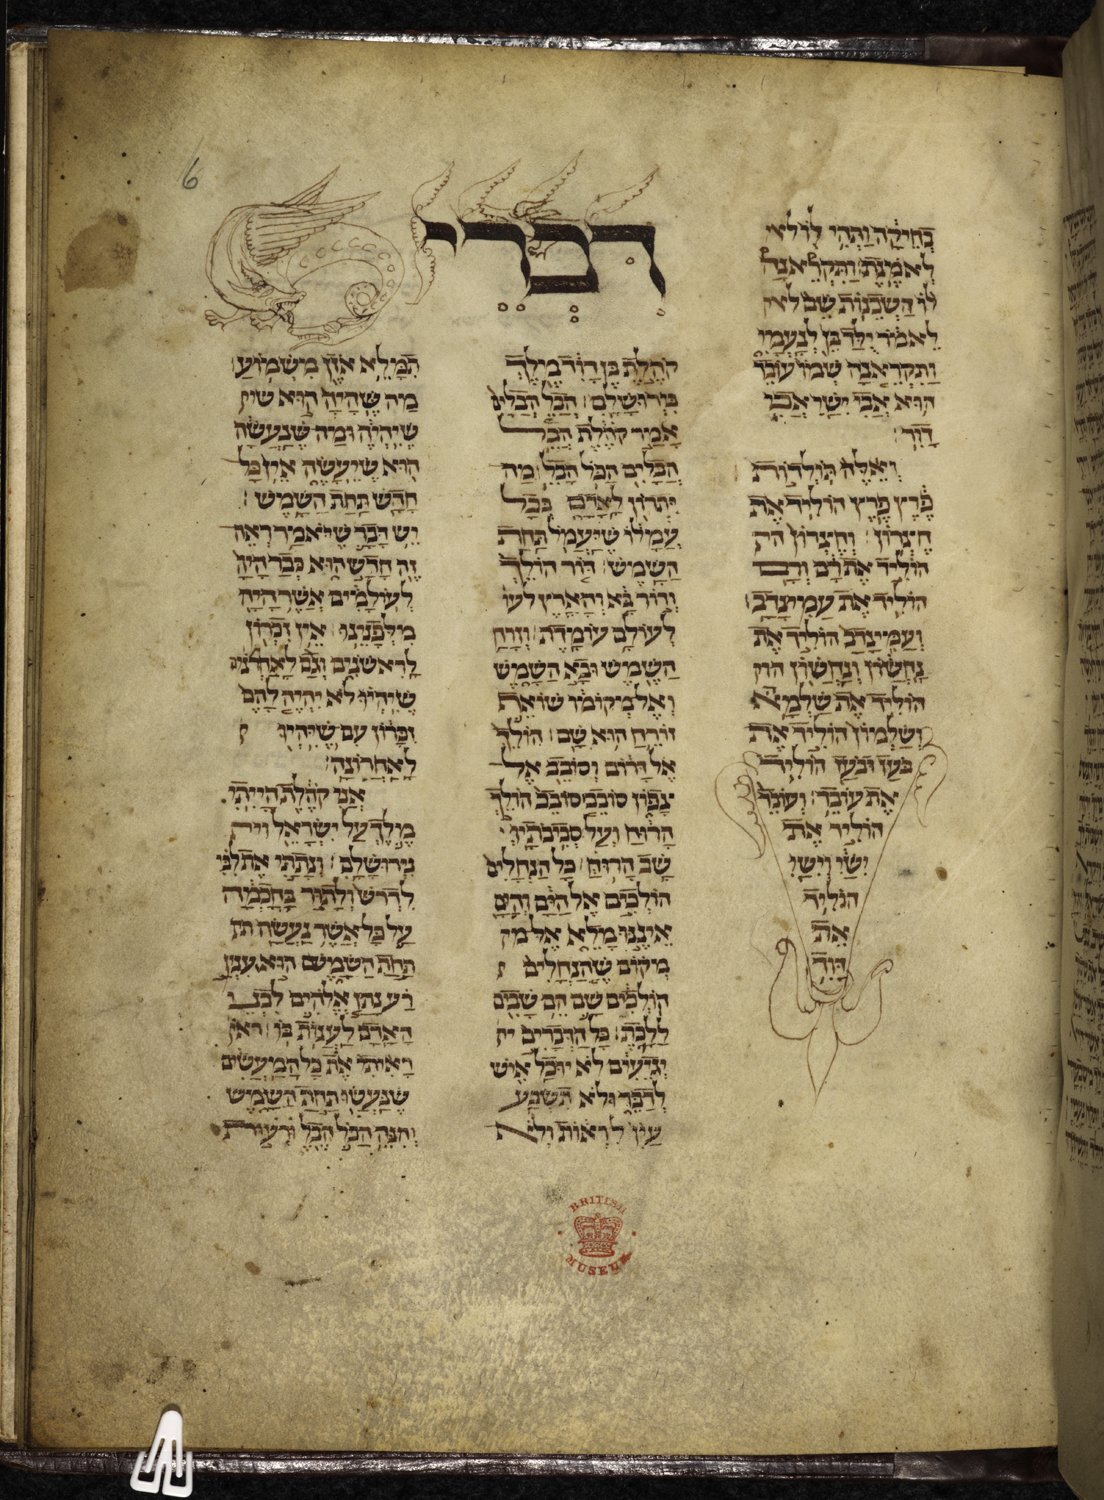 בחיקה ותהי לו לאו
לאמנת ותקראנה
לו השכנות שם לאמ
לאמר ילד בן לנעמי
ותקראנה שמו עובד
הוא אבי ישי אבי
דוד
ואלה תולדות
פרץ פרץ הוליד את
חצרון וחצרון הו
הוליד את רם ורם
הוליד את עמינדב
ועמינדב הוליד את
נחשון ונחשון הו
הוליד את שלמא
ושלמון הוליד את
בעז ובעז הוליד
את עובד ועובד
הוליד את
ישי וישי
הוליד
את
דוד
דברי
קהלת בן דוד מלך
בירושלם הבל הבלים
אמר קהלת הבל
הבלים הכל הבל מה
יתרון לאדם בכל
עמלו שיעמל תחת
השמש דור הולך
ודור בא והארץ לעו
לעולם עומדת וזרח
השמש ובא השמש
ואל מקומו שואף
זורח הוא שם הולך
אל דרום וסובב אל
צפון סובב סובב הולך
הרוח ועל סביבתיו
שב הרוח כל הנחלים
הולכים אל הים והים
איננו מלא אל מק
מקום שהנחלים
הולכים שם הם שבים
ללכת כל הדברים
יגעים לא יוכל איש
לדבר ולא תשבע
עין לראות ולא
תמלא אזן משמוע
מה שהיה הוא שי
שיהיה ומה שנעשה
הוא שיעשה אין כל
חדש תחת השמש
יש דבר שיאמר ראה
זה חדש הוא כבר היה
לעולמים אשר היה
מלפנינו אין זכרון
לראשנים וגם לאחרנים
שיהיו לא יהיה להם
זכרון עם שיהיו
לאחרונה
אני קהלת הייתי
מלך על ישראל
בירושלם ונתתי את לבי
לדרוש ולתור בחכמה
על כל אשר נעשה תח
תחת השמים הוא ענין
רע נתן אלהים לבני
האדם לענות בו
ראיתי את כל המעשים
שנעשו תחת השמש
והנה הכל הבל ורעות
6
BRITISH
MUSEUM